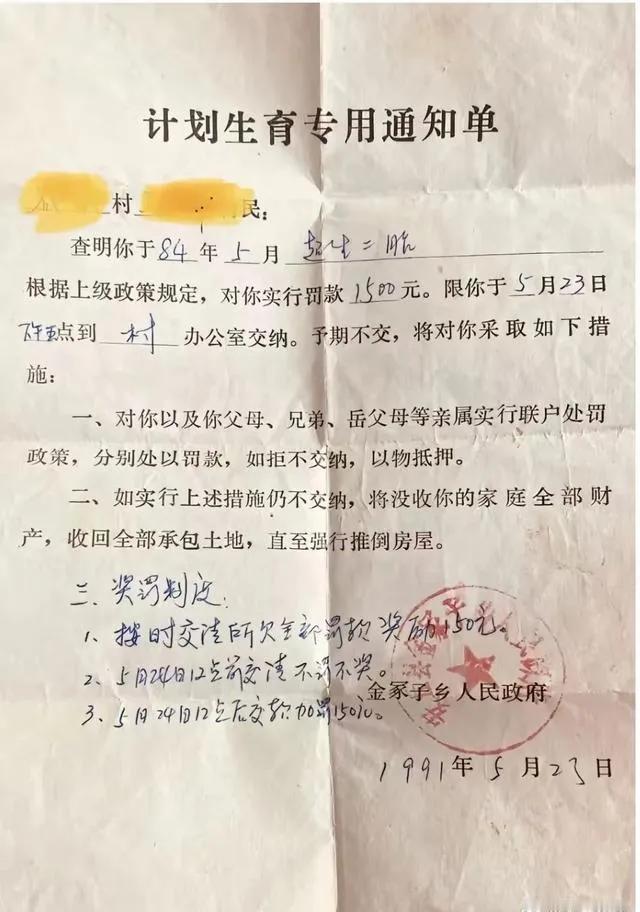 计划生育专用通知单
村 民:
查明你于84年5月超生二胎
根据上级政策规定，对你实行罚款1500元。限你于5月23日
下午五点到村办公室交纳。予期不交，将对你采取如下措
施:
一、对你以及你父母、兄弟、岳父母等亲属实行联户处罚
政策，分别处以罚款，如拒不交纳，以物抵押。
二、如实行上述措施仍不交纳，将没收你的家庭全部财
产，收回全部承包土地，直至强行推倒房屋。
三、奖罚制度:
1、按时交清所欠全部罚款奖励150元。
2、5月24日12点前交清不罚不奖。
金冢子乡人民政府
3、5月24日12点后交款加罚150元。
1991年5月23日